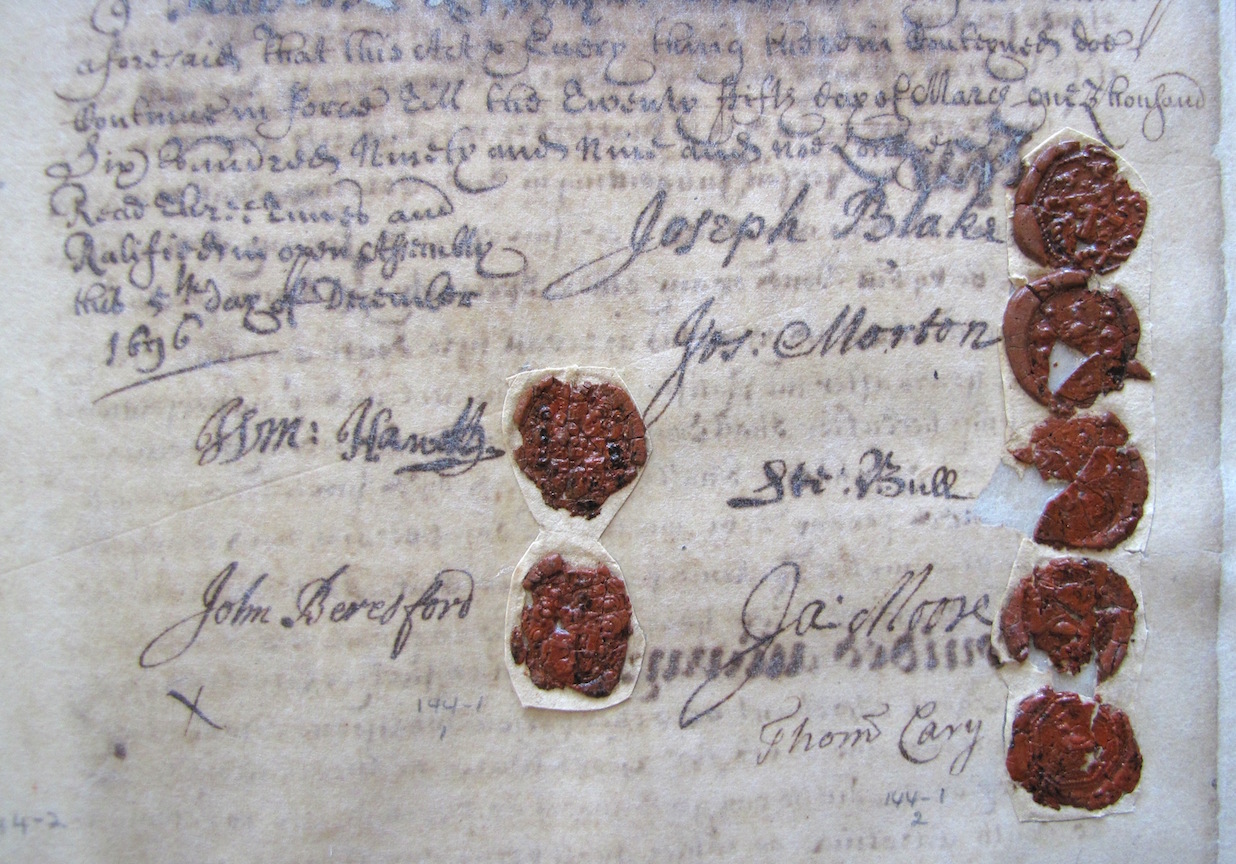 aforesaid That this Act & Every thing therein Conteyned doe
Continue in force till the Twenty fifth day of March one Thousand
Six hundred Ninety and Nine and noe Longer
Read three times and
Ratified in open Assembly
this 5th day of December
1696
Joseph Blake
Jos: Morton
Wm: Hawett
Ste: Bull
John Beresford
Ja: Moore
X
144-1
Thom Cary
144-1
2
4-2